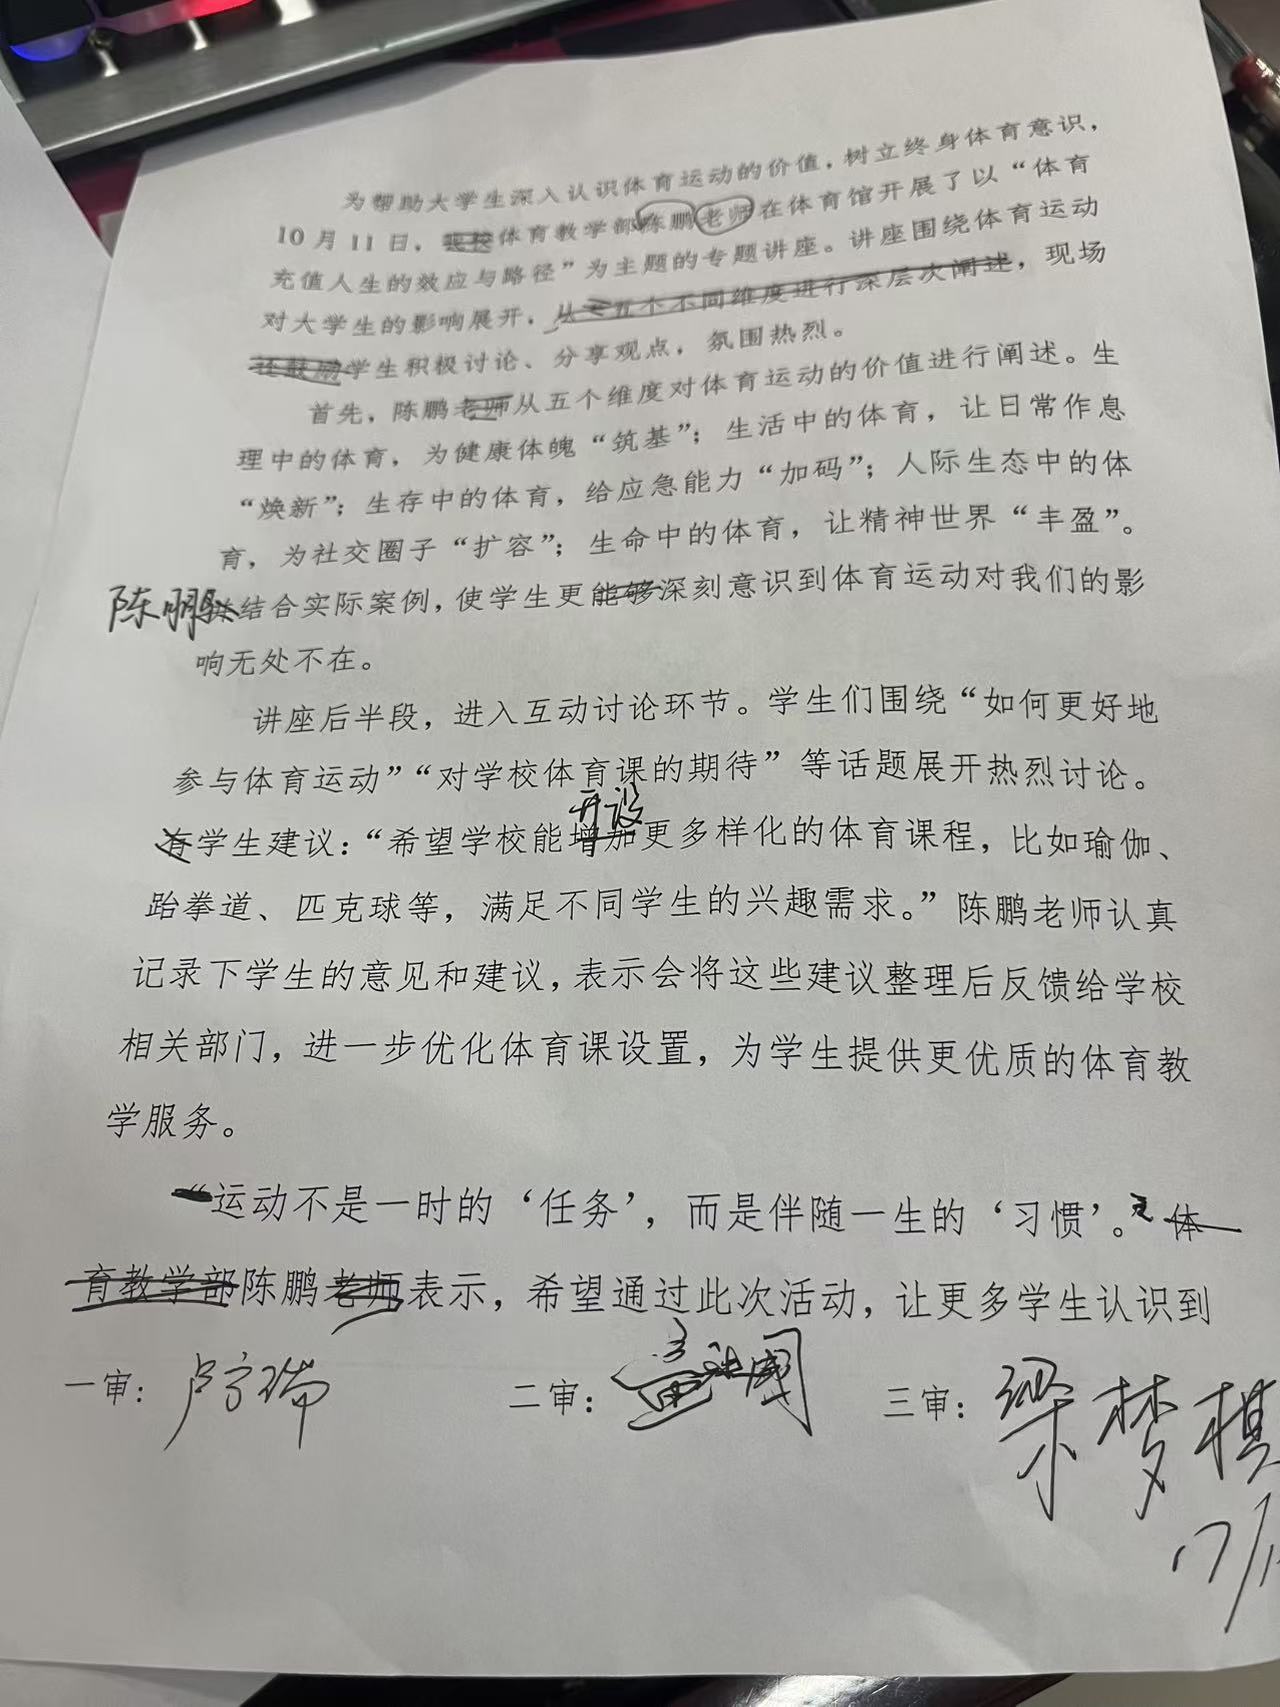 为帮助大学生深入认识体育运动的价值，树立终身体育意识，
10月11日，我校体育教学部陈鹏老师在体育馆开展了以“体育
充值人生的效应与路径”为主题的专题讲座。讲座围绕体育运动
对大学生的影响展开，从五个不同维度进行深层次阐述，现场
还鼓励学生积极讨论、分享观点，氛围热烈。
首先，陈鹏老师从五个维度对体育运动的价值进行阐述。生
理中的体育，为健康体魄“筑基”；生活中的体育，让日常作息
“焕新”；生存中的体育，给应急能力“加码”；人际生态中的体
育，为社交圈子“扩容”；生命中的体育，让精神世界“丰盈”。
陈鹏结合实际案例，使学生更能够深刻意识到体育运动对我们的影
响无处不在。
讲座后半段，进入互动讨论环节。学生们围绕“如何更好地
参与体育运动”“对学校体育课的期待”等话题展开热烈讨论。
开设
有学生建议：“希望学校能增加更多样化的体育课程，比如瑜伽、
跆拳道、匹克球等，满足不同学生的兴趣需求。”陈鹏老师认真
记录下学生的意见和建议，表示会将这些建议整理后反馈给学校
相关部门，进一步优化体育课设置，为学生提供更优质的体育教
学服务。
“运动不是一时的‘任务’，而是伴随一生的‘习惯’。”体
育教学部陈鹏老师表示，希望通过此次活动，让更多学生认识到
一审：卢方瑞 二审： 三审：梁梦棋
17/1